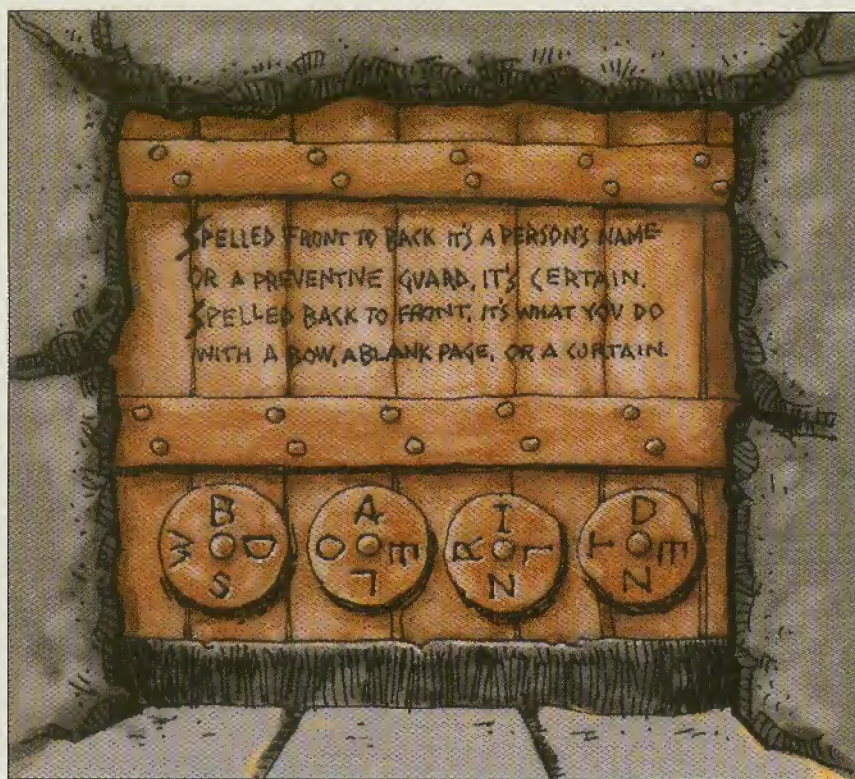 SPELLED FRONT TO BACK IT'S A PERSON'S NAME
OR A PREVENTIVE GUARD, IT'S CERTAIN.
SPELLED BACK TO FRONT, IT'S WHAT YOU DO
WITH A BOW, A BLANK PAGE, OR A CURTAIN.
B A I D
W D O E R L T E
S L N N